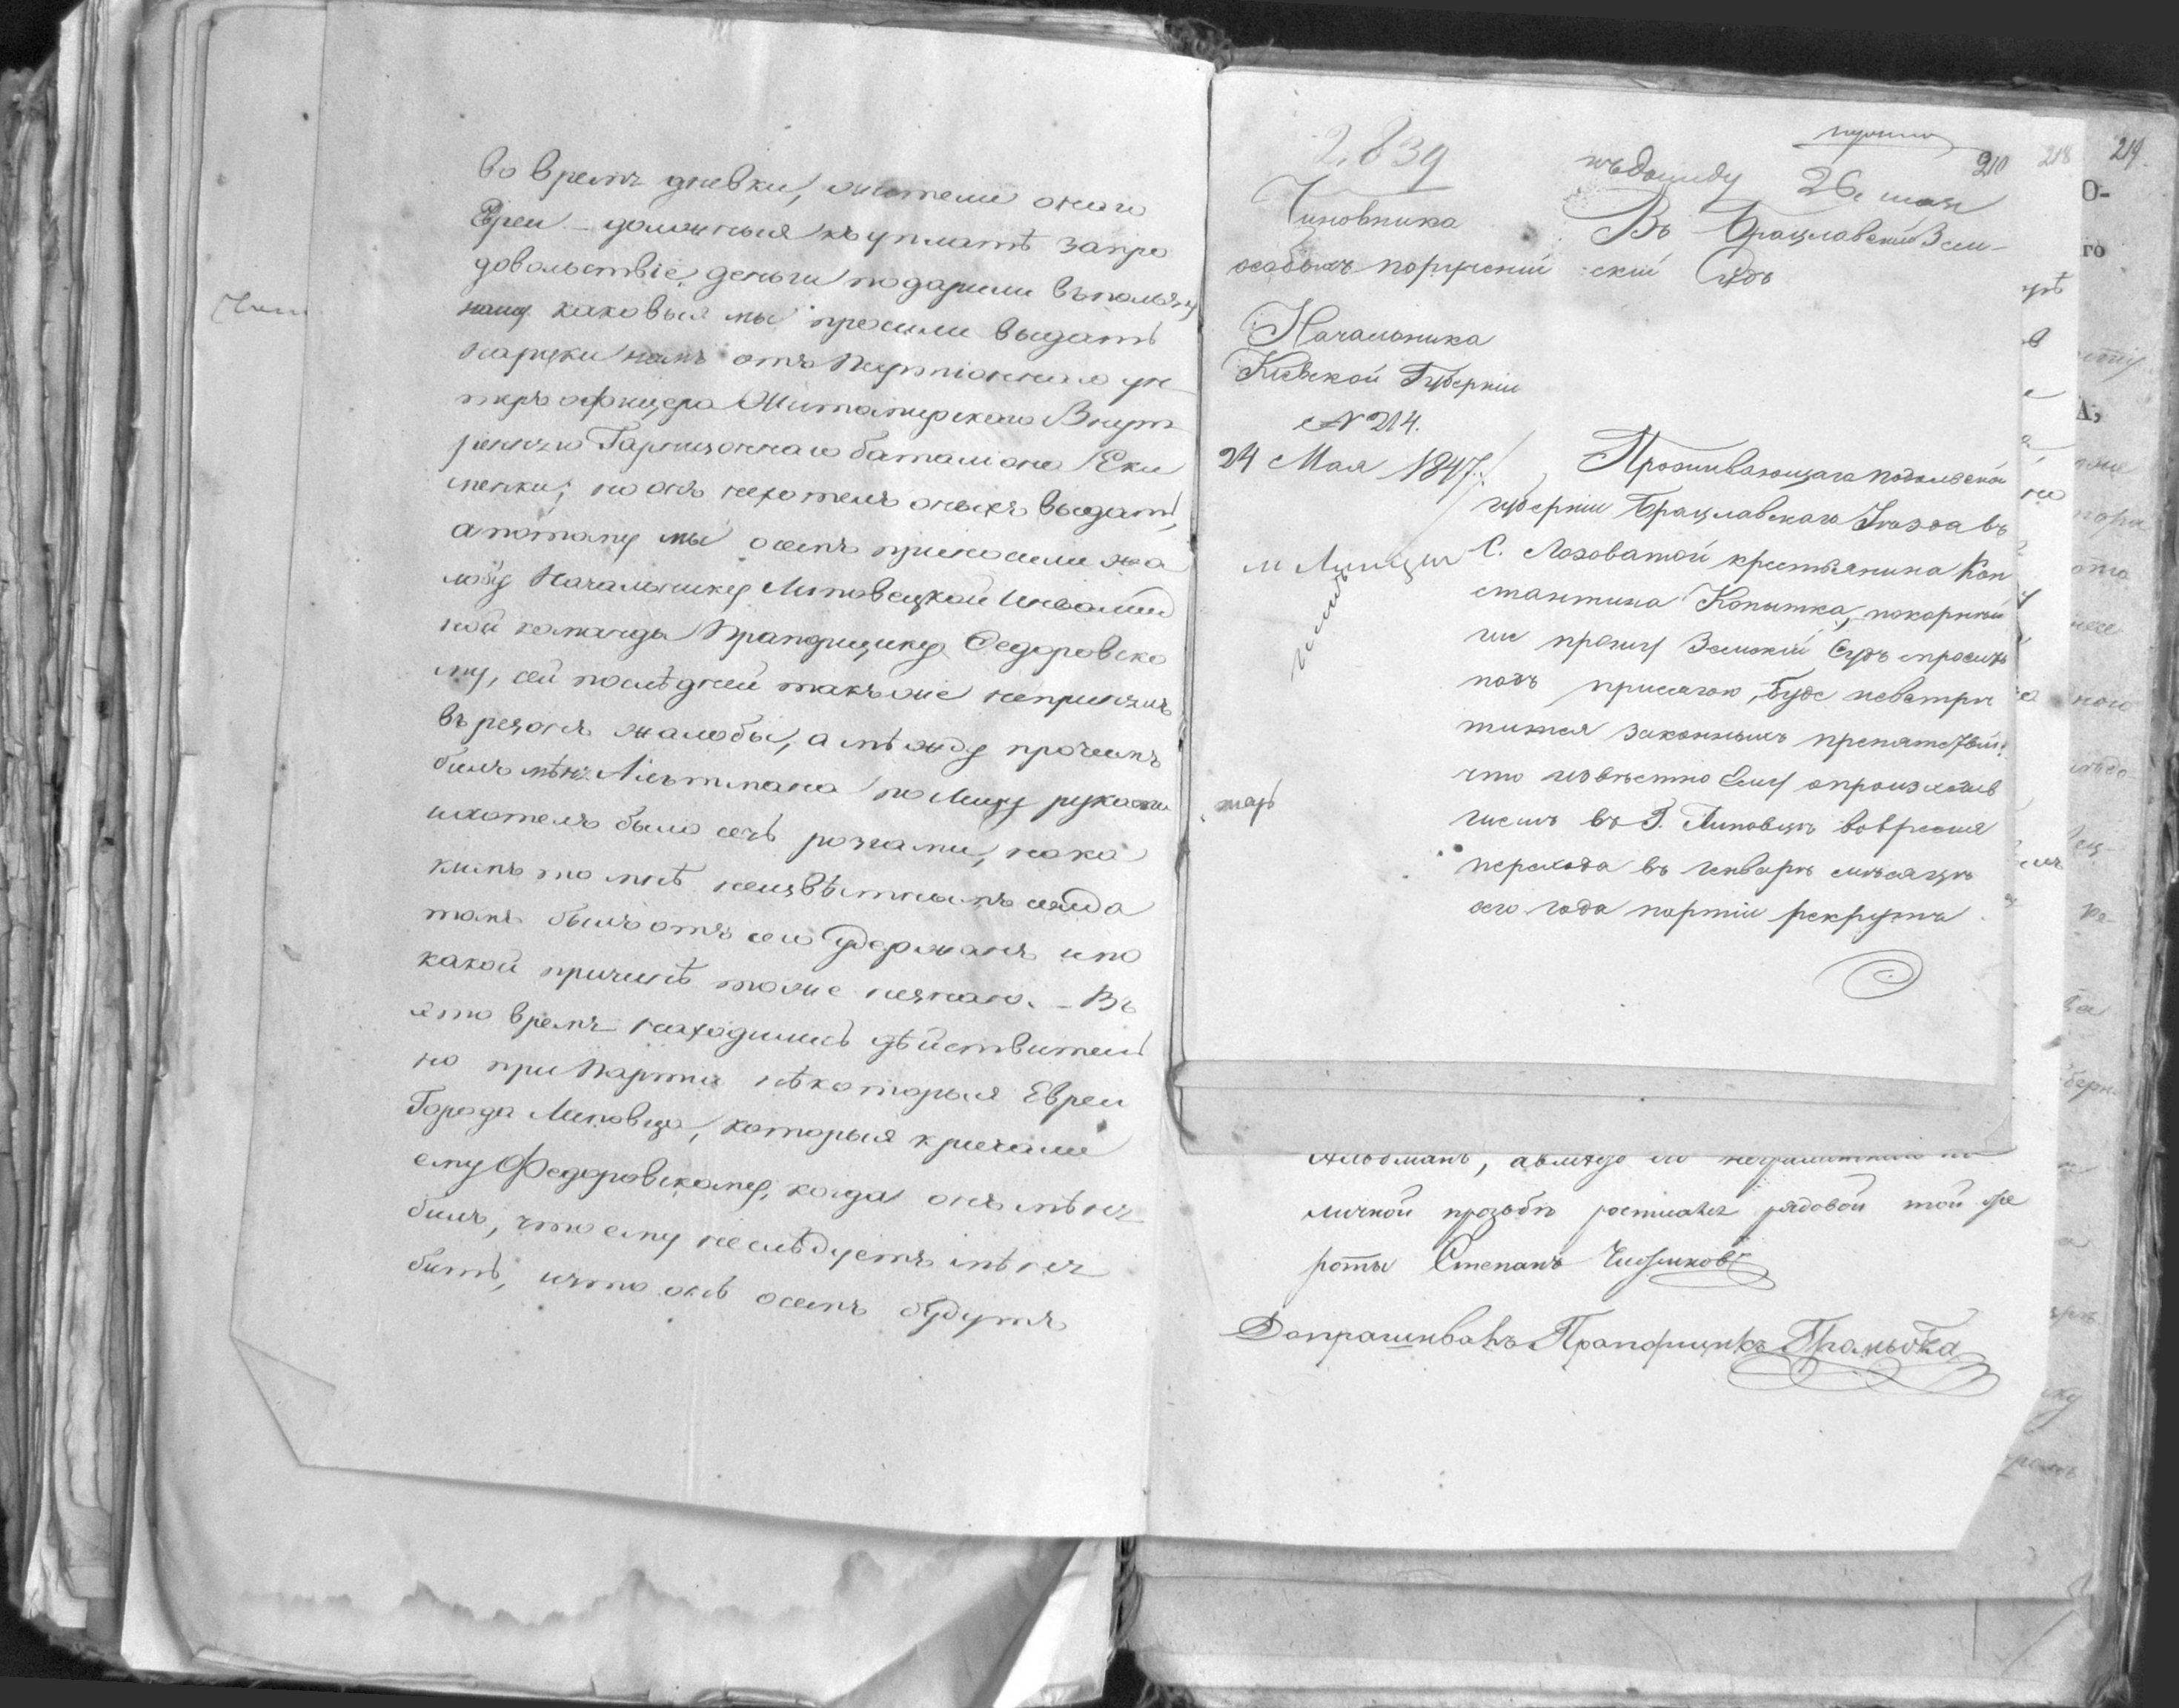 во время дневки, жители онаго
Евреи – должныя къ уплатѣ за про
довольствіе, деньги подарили въ пользу
нашу каковыя мы просили выдать
на руки намъ отъ Партіоннаго ун
теръ офицера Житомирскаго Внут
ренняго Гарнизоннаго баталіона Еки
менки; но онъ не хотелъ оныхъ выдать,
а потому мы о семъ приносили жа
лобу Начальнику Липовецкой Инвалид
ной команды Прапорщику Федоровско
му, сей послѣдней также не принялъ
въ резонъ жалобы, а мѣжду прочимъ
билъ мѣня Альтмана по лицу руками
и хотелъ было сечь розгами, но ка
кимъ то мнѣ неизвѣстнымъ солда
томъ былъ отъ сего удержанъ и по
какой причинѣ тоже не знаю. – Въ
это время находились дѣйствитель
но при Партіи нѣкоторыя Евреи
Города Липовца, которыя кричали
ему Федоровскому, когда онъ мѣня
билъ, что ему не слѣдуетъ мѣня
бить, и что онѣ о семъ будутъ
2,839
210
218
219
къ докладу 26 мая
Чиновника
особыхъ порученій
Начальника
Кіевской Губерніи
№ 214.
24 Мая 1847.
Въ Брацлавскій Зем-
скій Судъ
Проживающаго Подольской
губерніи Брацлавскаго Уѣзда въ
С. Лозоватой крестьянина Кон
стантина Копытка, покорнѣй
ше прошу Земскій Судъ спросить
подъ присягою, буде не встрѣ
тится законныхъ препятствій:
что извѣстно Ему о произходив
шемъ въ Г. Липовцѣ во время
перехода въ Генварѣ мѣсяцѣ
сего года партіи рекрутъ
Альтманъ, а вмѣсто его неграмотнаго по
личной прозьбѣ росписался рядовой той же
роты Степанъ
Допрашивалъ Прапорщикъ